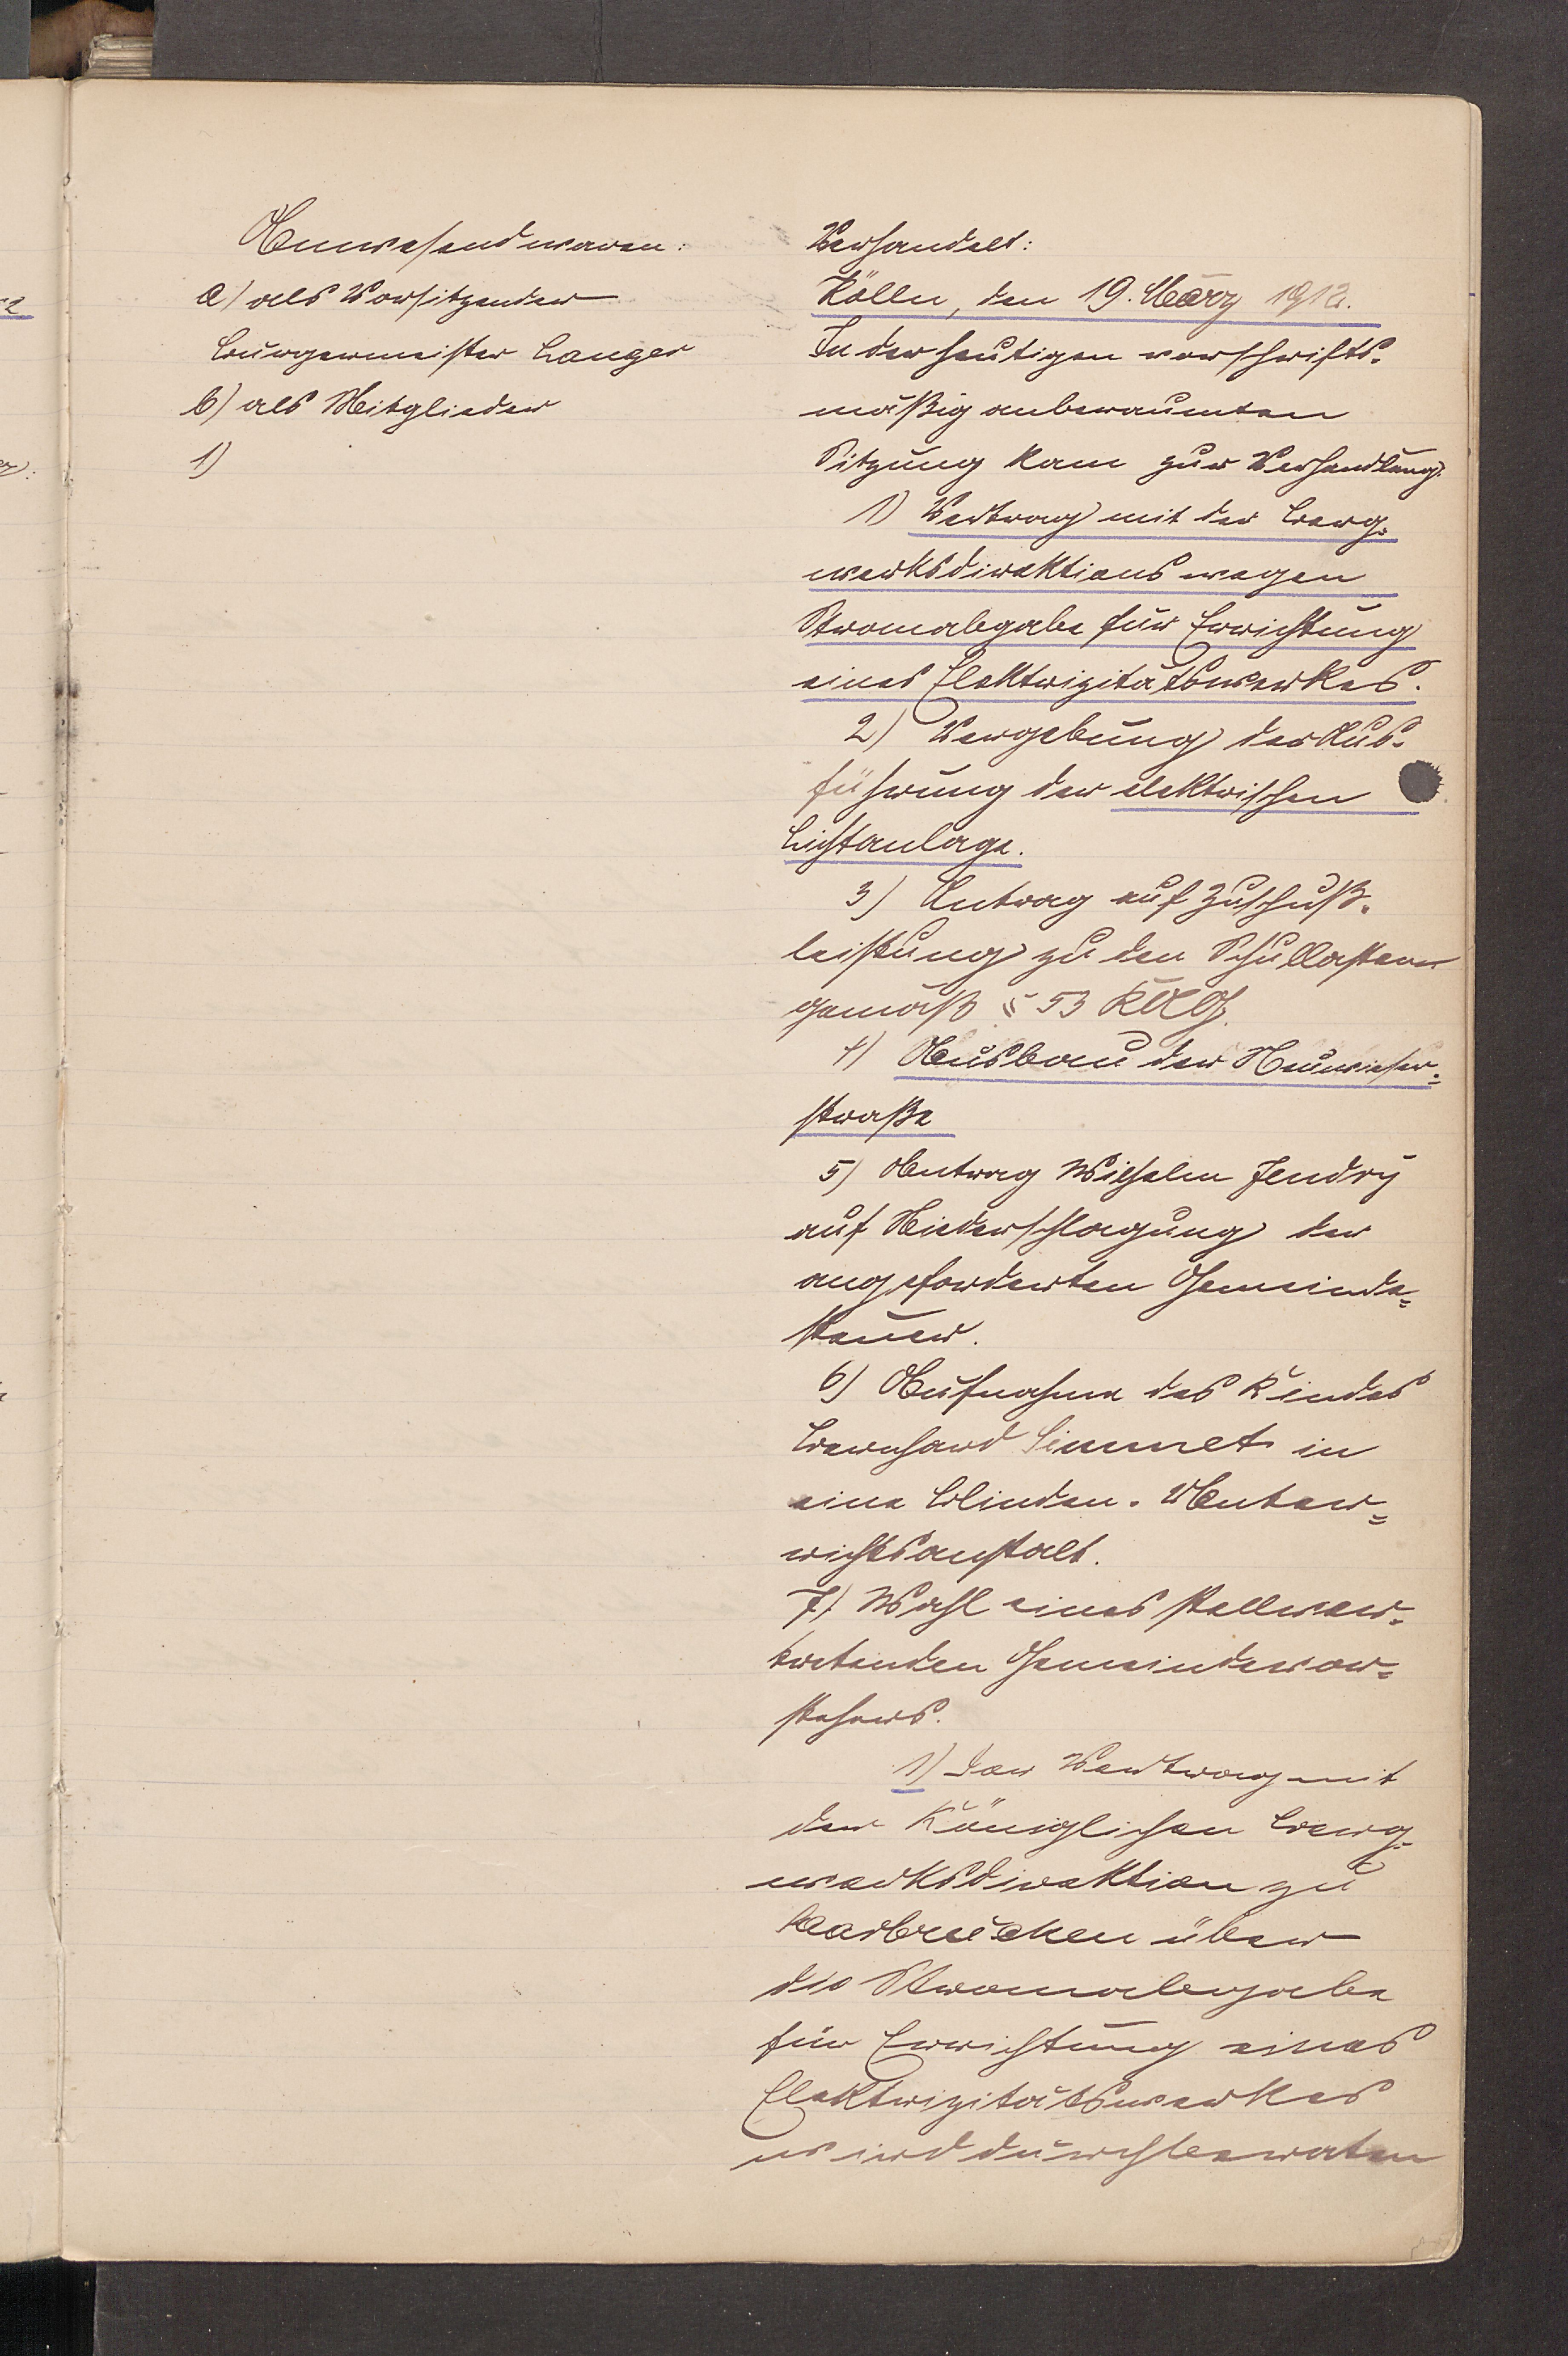 Anwesend waren:
a) als Vorsitzender
Bürgermeister Langer
b) als Mitglieder
1)
Verhandelt:
Kölln, den 19. März 1912.
In der heutigen vorschrifts-
mäßig anberaumten
Sitzung kam zur Verhandlung:
1) Vertrag mit der Berg-
werksdirektions wegen
Stromabgabe für Errichtung
eines Elektrizitätswerkes.
2) Vergebung der Aus-
führung der elektrischen
Lichtanlage.
3) Antrag auf Zuschuß-
leistung zu den Schullasten
gemäß § 53 KAG.
4) Ausbau der Neuwieser-
straße
5) Antrag Wilhelm Jendry
auf Niederschlagung der
angeforderten Gemeinde=
steuer.
6) Aufnahme des Kindes
Bernhard Simmet in
eine Blinden-Unter=
richtsanstalt.
7) Wahl eines stellver-
tretenden Gemeindevor=
stehers.
1) Der Vertrag mit
der Königlichen Berg-
werksdirektion zu
Saarbrücken über
die Stromabgabe
für Errichtung eines
Elektrizitätswerkes
wird durchberaten